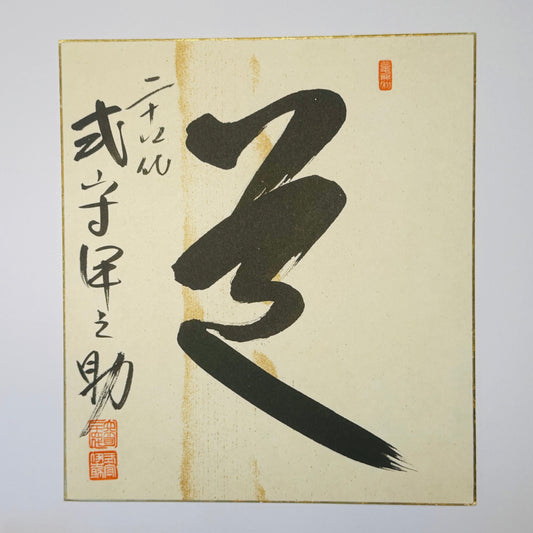 道
二十代
式守伊之助